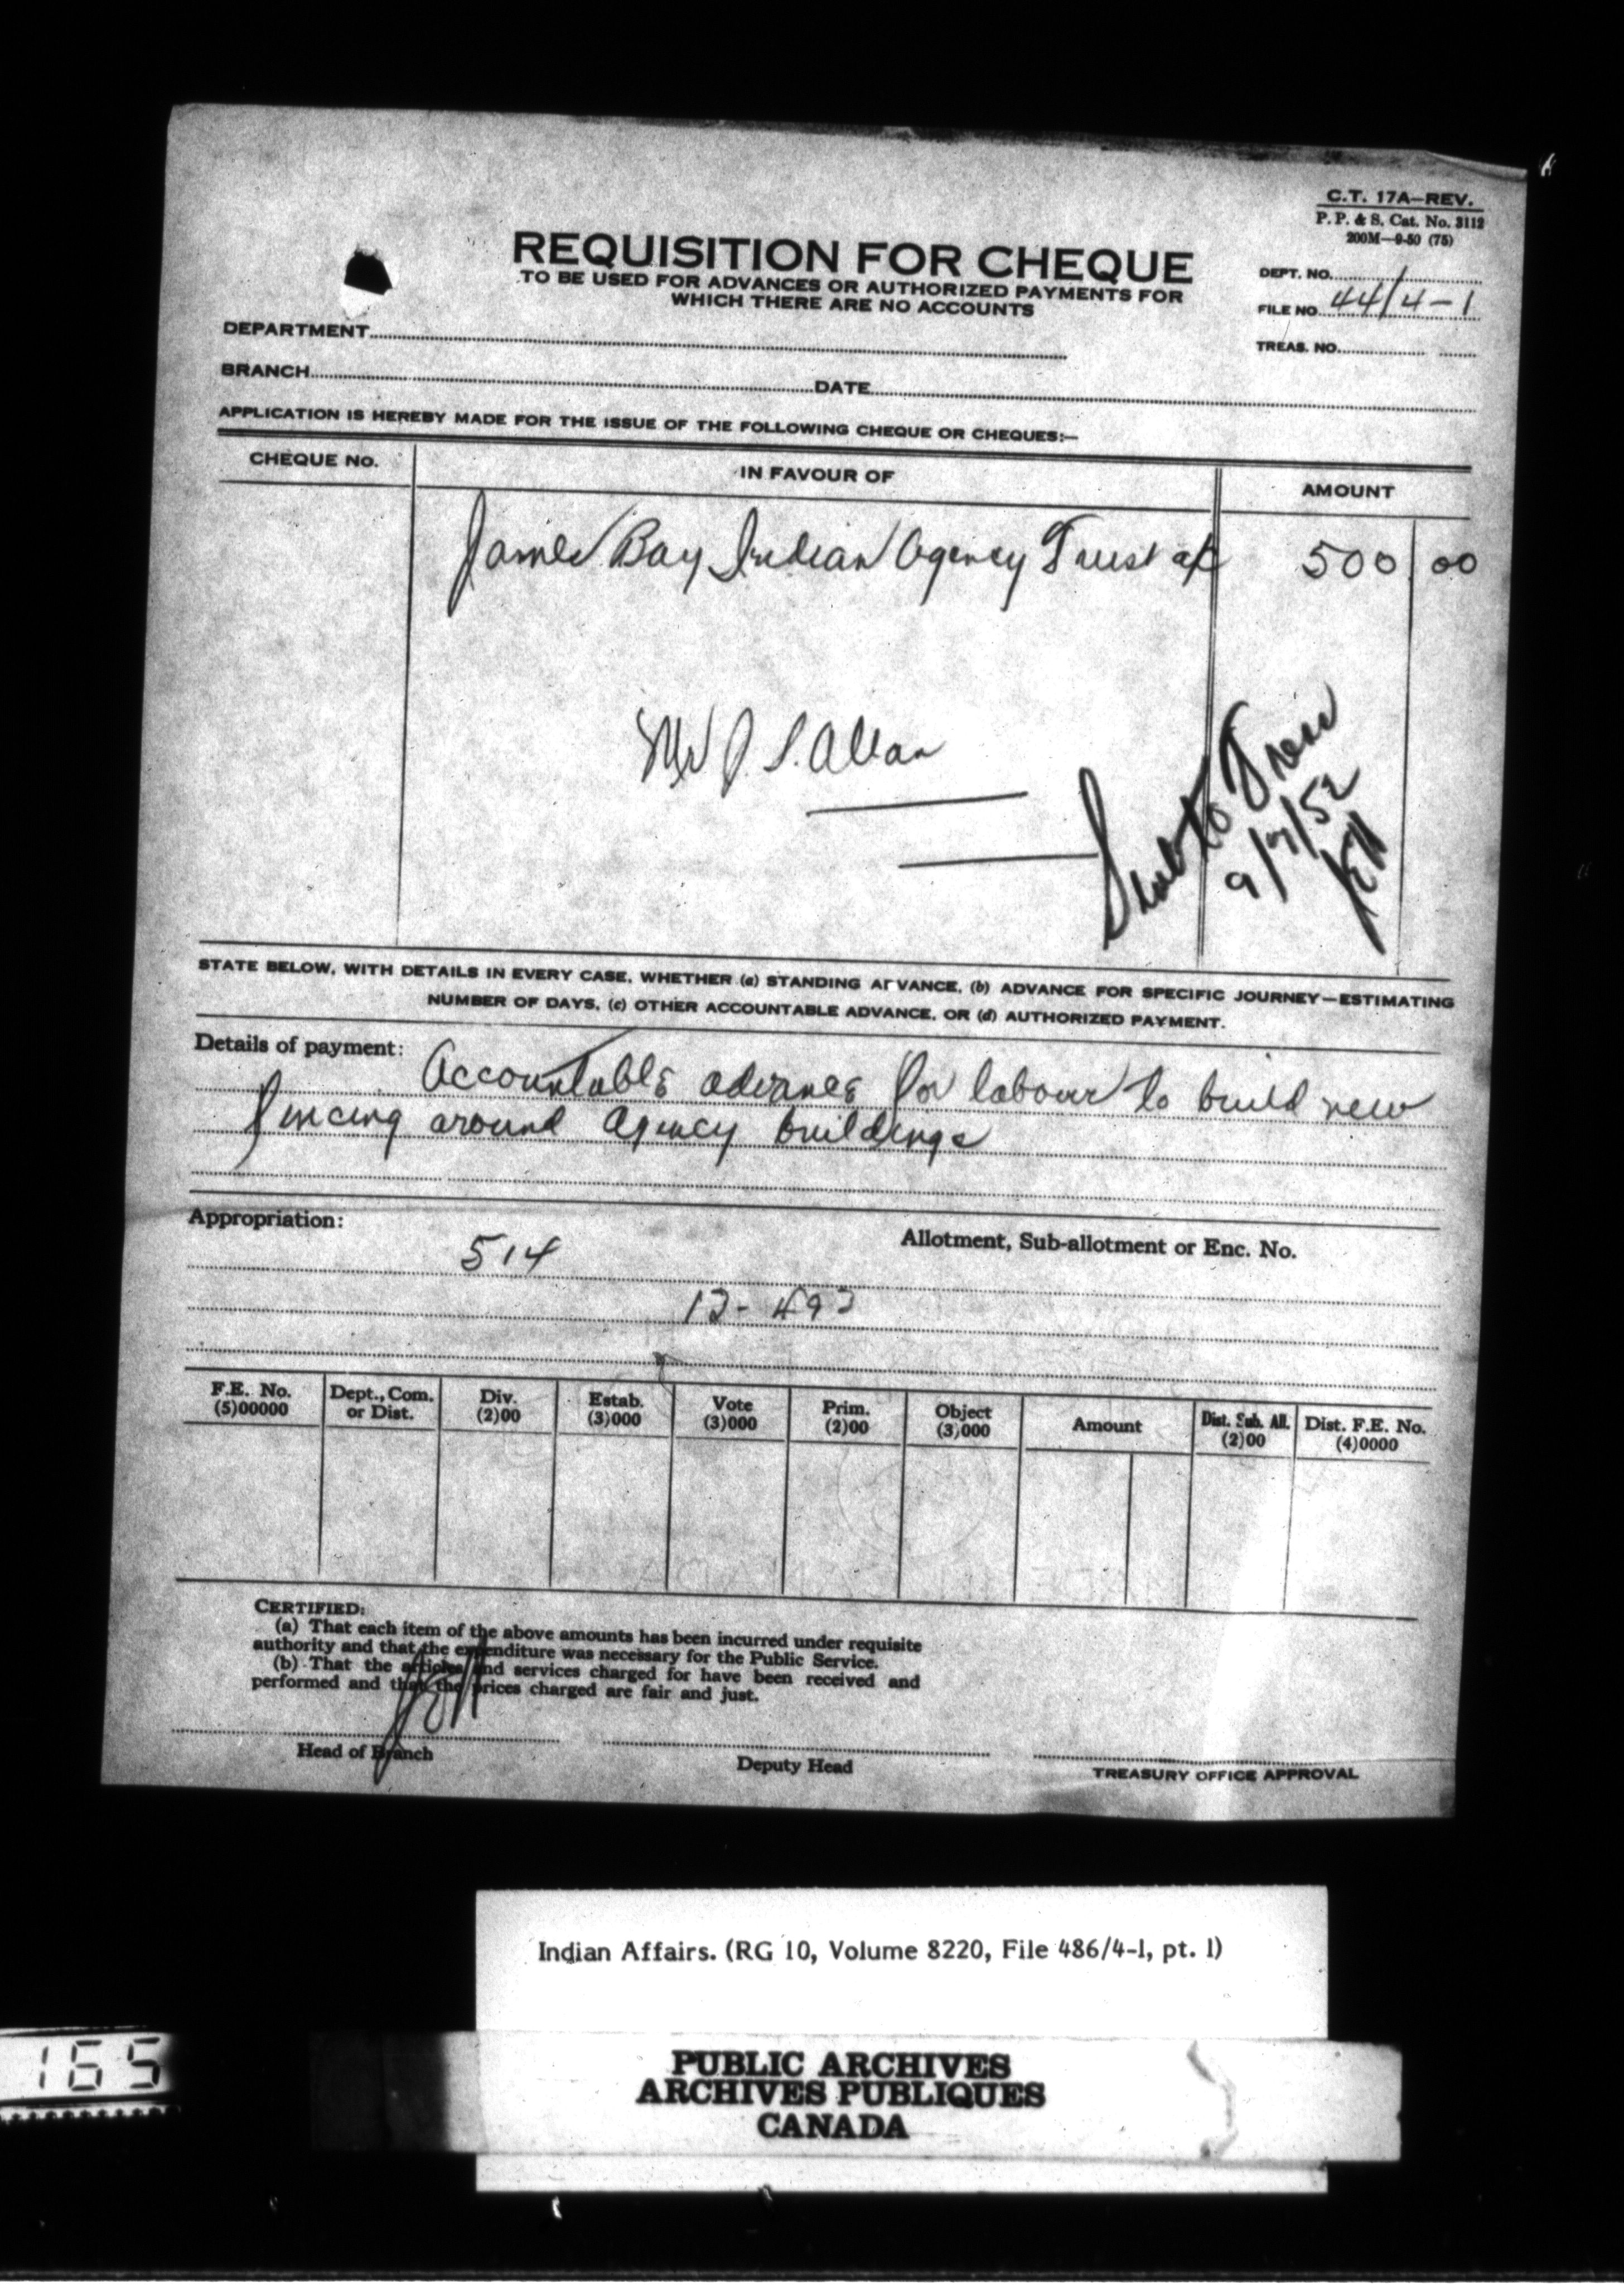 C.T. 17A—REV.
P. P. & S. Cat. No. 3112
200M—9-50 (75)
REQUISITION FOR CHEQUE
TO BE USED FOR ADVANCES OR AUTHORIZED PAYMENTS FOR
WHICH THERE ARE NO ACCOUNTS
DEPT. NO.
FILE NO. 44/4-1
TREAS. NO.
DEPARTMENT
BRANCH DATE
APPLICATION IS HEREBY MADE FOR THE ISSUE OF THE FOLLOWING CHEQUE OR CHEQUES:—
CHEQUE NO. IN FAVOUR OF AMOUNT
James Bay Indian Agency Trust a/c 500 00
Mr J. S. Allan
Sub to Treas
9/7/52
STATE BELOW, WITH DETAILS IN EVERY CASE, WHETHER (a) STANDING ADVANCE, (b) ADVANCE FOR SPECIFIC JOURNEY—ESTIMATING
NUMBER OF DAYS, (c) OTHER ACCOUNTABLE ADVANCE, OR (d) AUTHORIZED PAYMENT.
Details of payment: Accountable advance for labour to build new
fencing around Agency buildings
Appropriation: Allotment, Sub-allotment or Enc. No.
514
12-493
F.E. No. Dept., Com. Div. Estab. Vote Prim. Object Amount Dist. Sub. All. Dist. F.E. No.
(5)00000 or Dist. (2)00 (3)000 (3)000 (2)00 (3)000 (2)00 (4)0000
CERTIFIED:
(a) That each item of the above amounts has been incurred under requisite
authority and that the expenditure was necessary for the Public Service.
(b) That the articles and services charged for have been received and
performed and that the prices charged are fair and just.
Head of Branch Deputy Head TREASURY OFFICE APPROVAL
Indian Affairs. (RG 10, Volume 8220, File 486/4-1, pt. 1)
165
PUBLIC ARCHIVES
ARCHIVES PUBLIQUES
CANADA